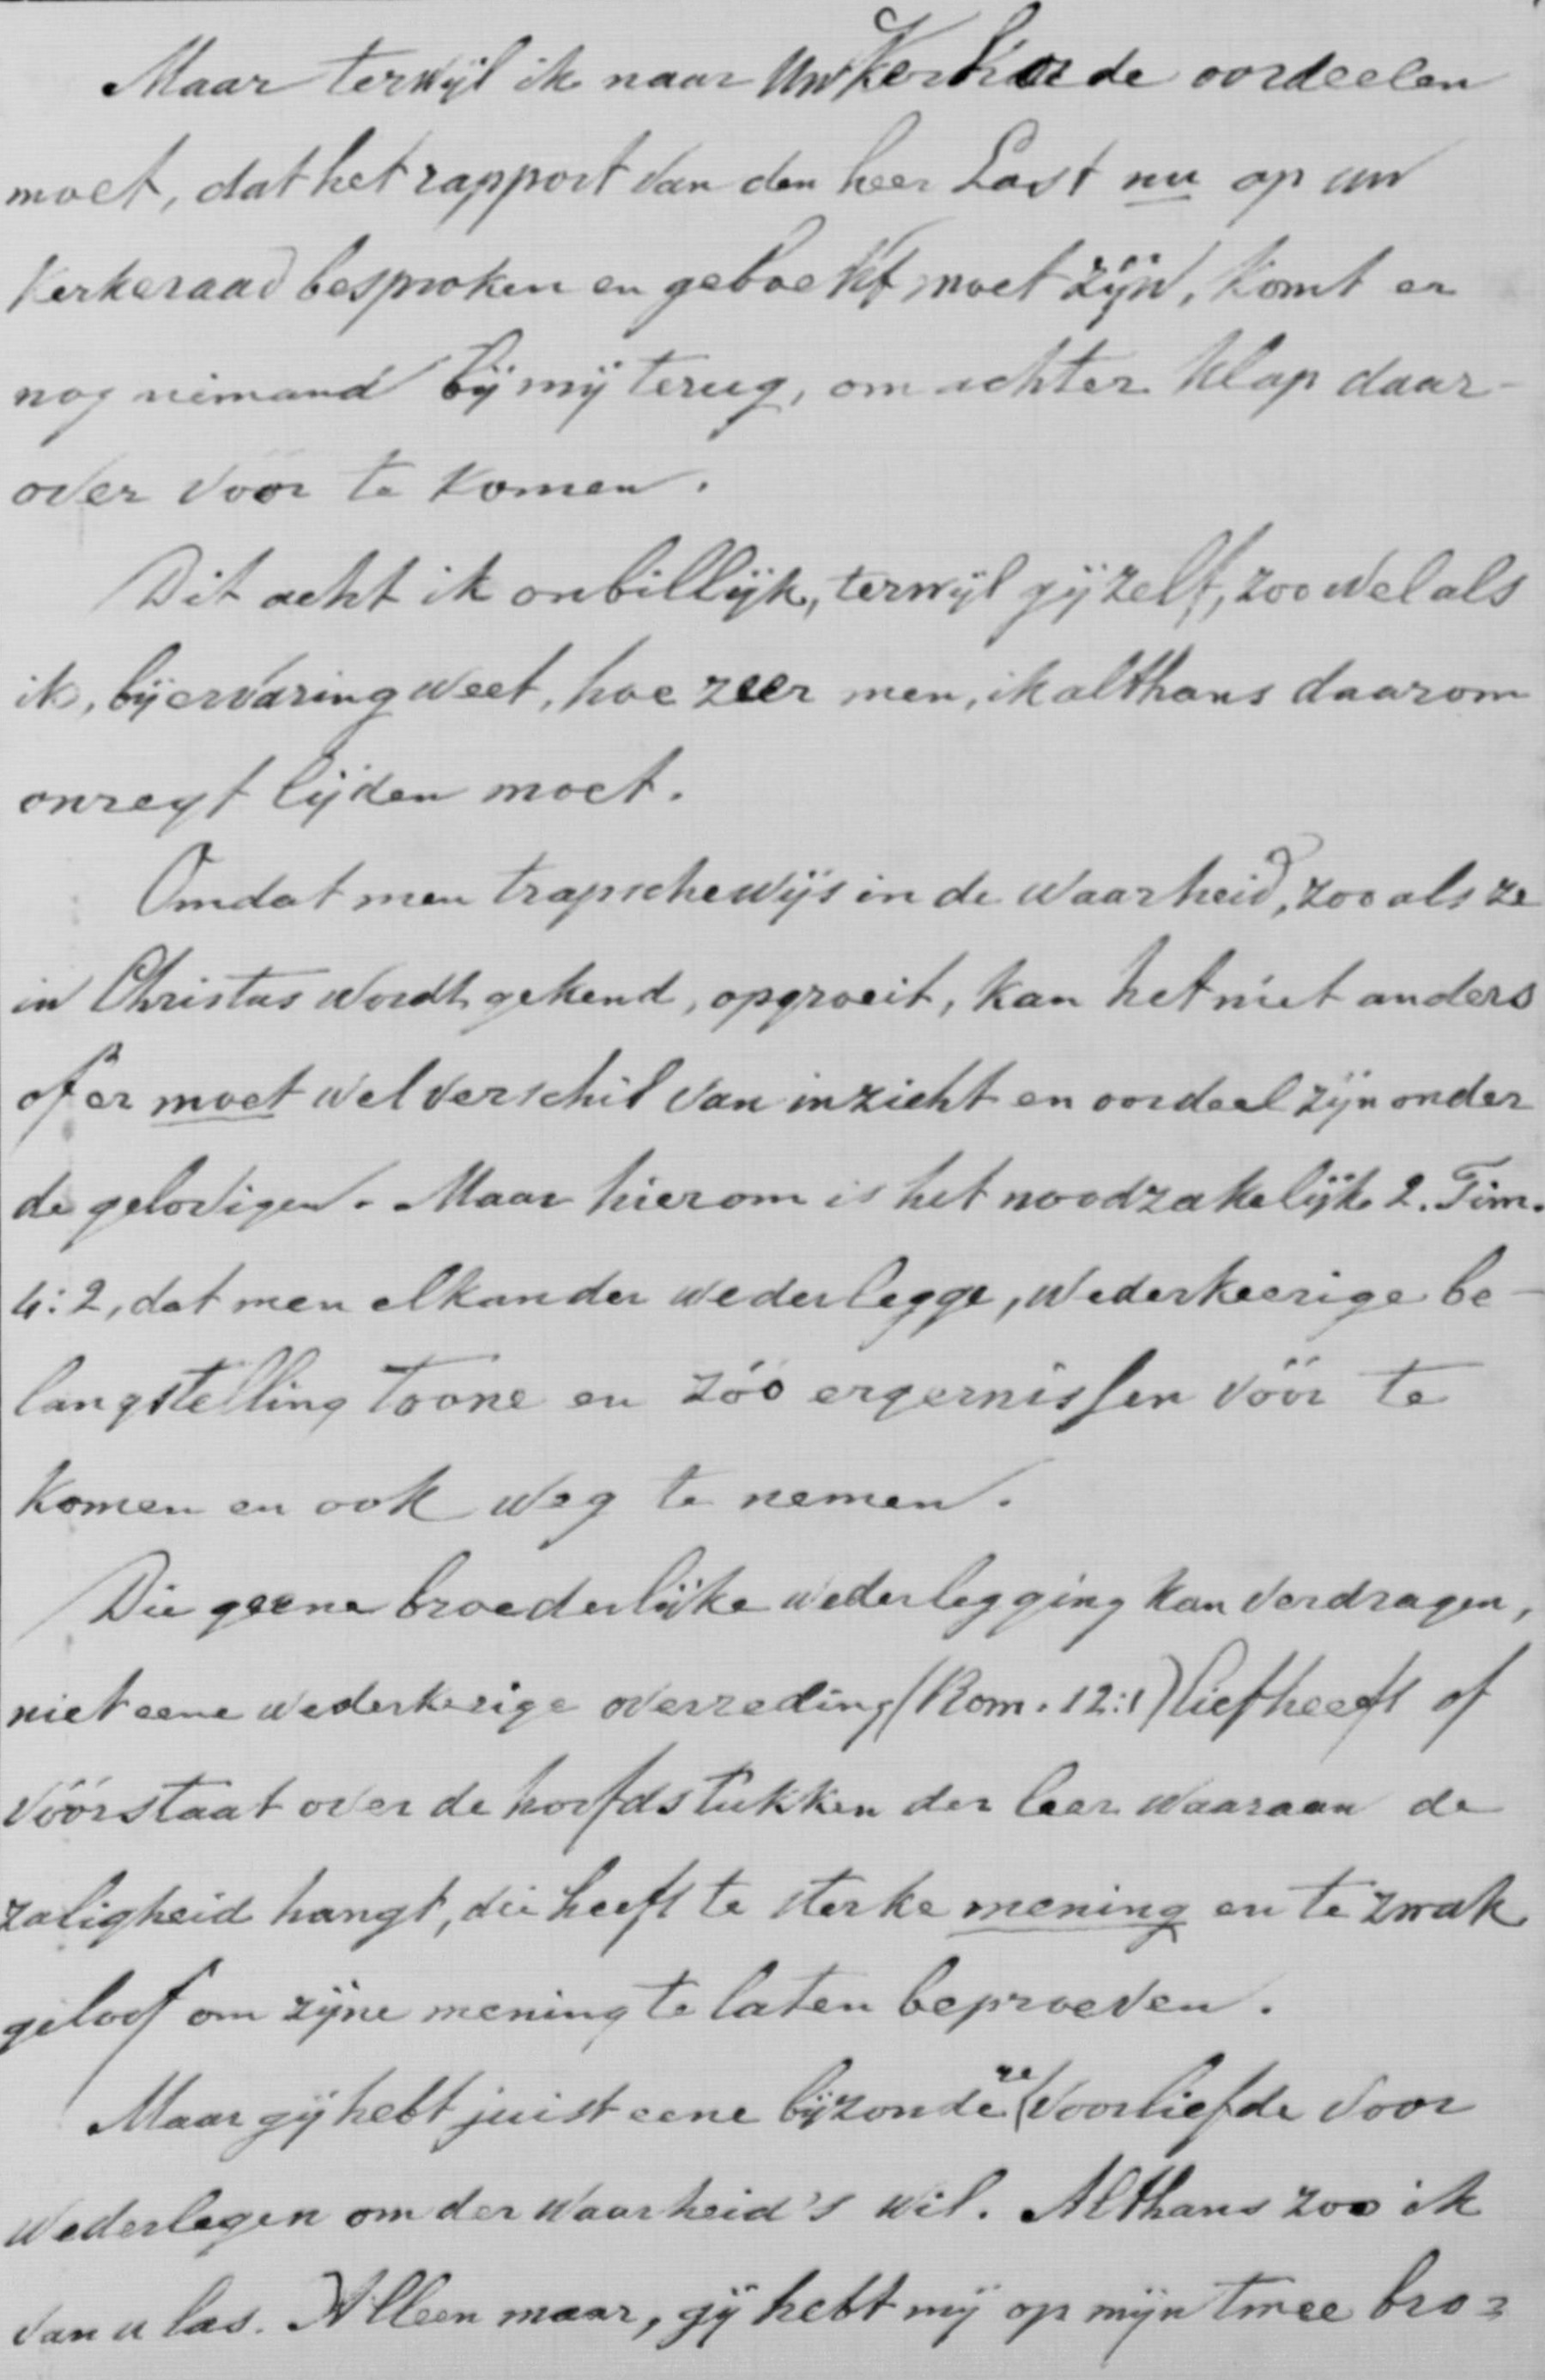 Maar terwijl ik naar Uw Kerkorde oordeelen
moet, dat het rapport van den heer Last nu op uw
Kerkeraad besproken en geboekt moet zijn, komt er
nog niemand bij mij terug, om achter klap daar-
over voor te komen.
Dit acht ik onbillijk, terwijl gij zelf, zoowel als
ik, bij ervaring weet, hoe zeer men, ik althans daarom
onregt lijden moet.
Omdat men trapschewijs in de waarheid, zooals ze
in Christus wordt gekend, opgroeit, kan het niet anders
of er moet wel verschil van inzicht en oordeel zijn onder
de gelovigen. Maar hierom is het noodzakelijk 2. Tim.
4:2, dat men elkander wederlegge, wederkeerige be-
langstelling toone en zóó ergernissen vóór te
komen en ook weg te nemen.
Die geene broederlijke wederlegging kan verdragen,
niet eene wederkerige overreding (Rom. 12:1) liefheeft of
vóórstaat over de hoofdstukken der leer waaraan de
zaligheid hangt, die heeft te sterke mening en te zwak
geloof om zijne mening te laten beproeven.
Maar gij hebt juist eene bijzondere voorliefde voor
wederlegen om der waarheid's wil. Althans zoo ik
van u las. Alleen maar, gij hebt mij op mijn twee bro=